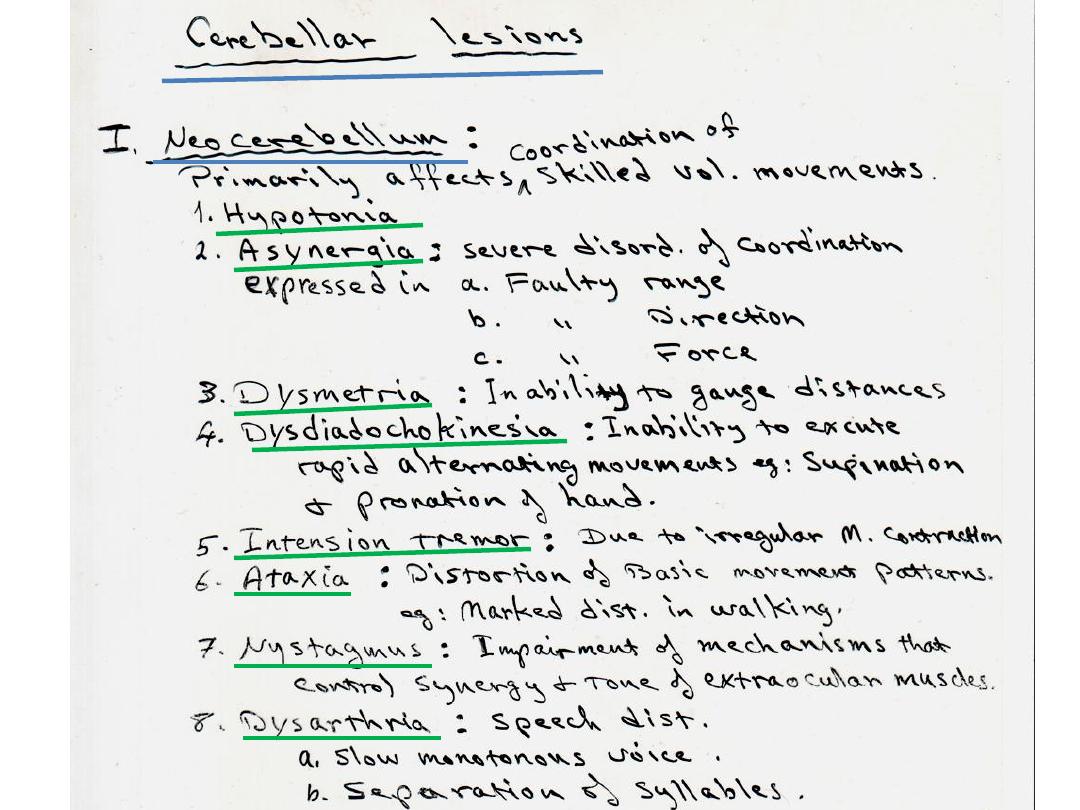 Cerebellar lesions
I. Neocerebellum :
Primarily affects coordination of skilled vol. movements.
1. Hypotonia
2. Asynergia : severe disord. of coordination
expressed in a. Faulty range
b. " Direction
c. " Force
3. Dysmetria : Inability to gauge distances
4. Dysdiadochokinesia : Inability to excute
rapid alternating movements eg: Supination
& pronation of hand.
5. Intension tremor : Due to irregular M. Contraction
6. Ataxia : Distortion of Basic movement patterns.
eg: Marked dist. in walking.
7. Nystagmus : Impairment of mechanisms that
control synergy & tone of extraocular muscles.
8. Dysarthria : Speech dist.
a. Slow monotonous voice .
b. Separation of syllables .